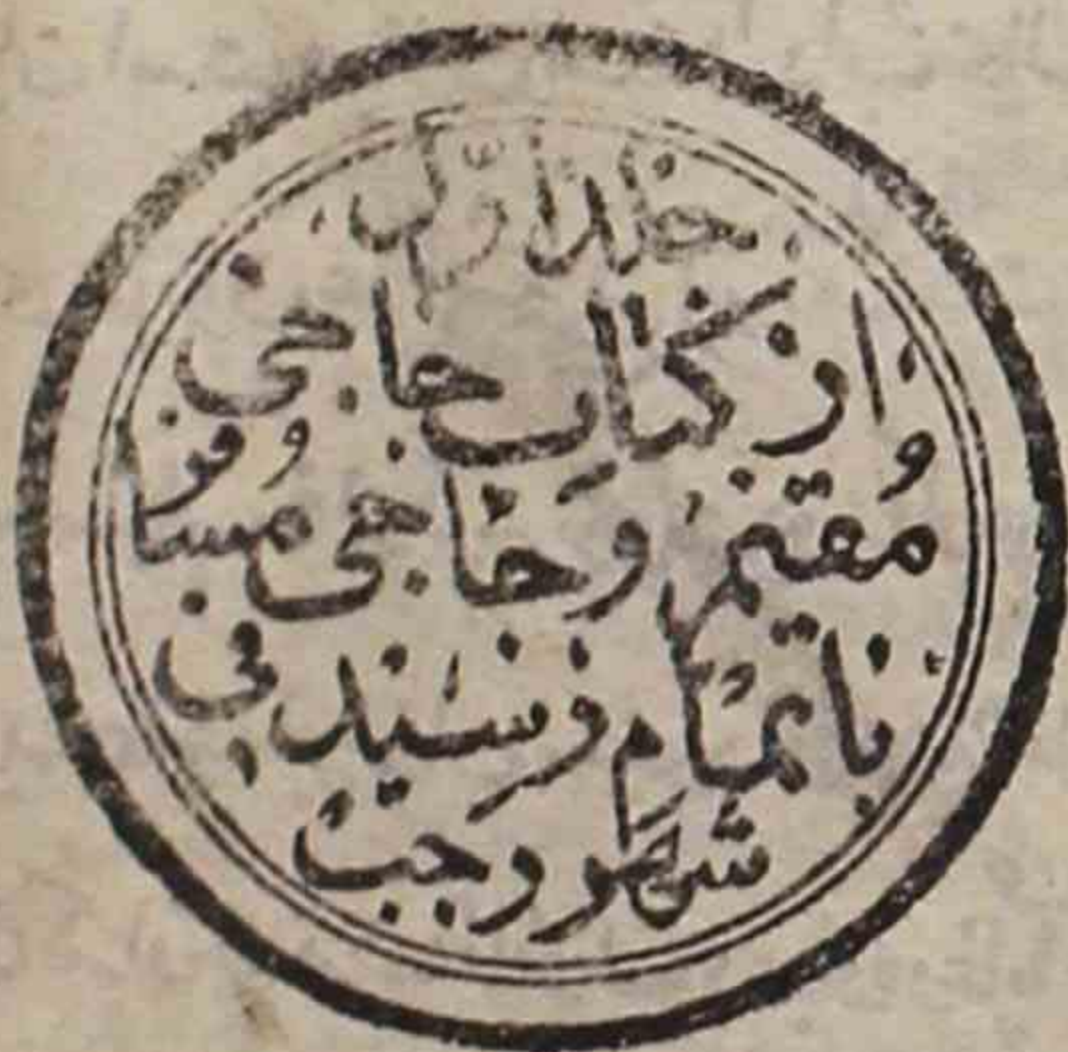 جلد اول
از کتاب حاجی
مقیم و حاجی مسافر
باتمام رسید فی
شهر رجب